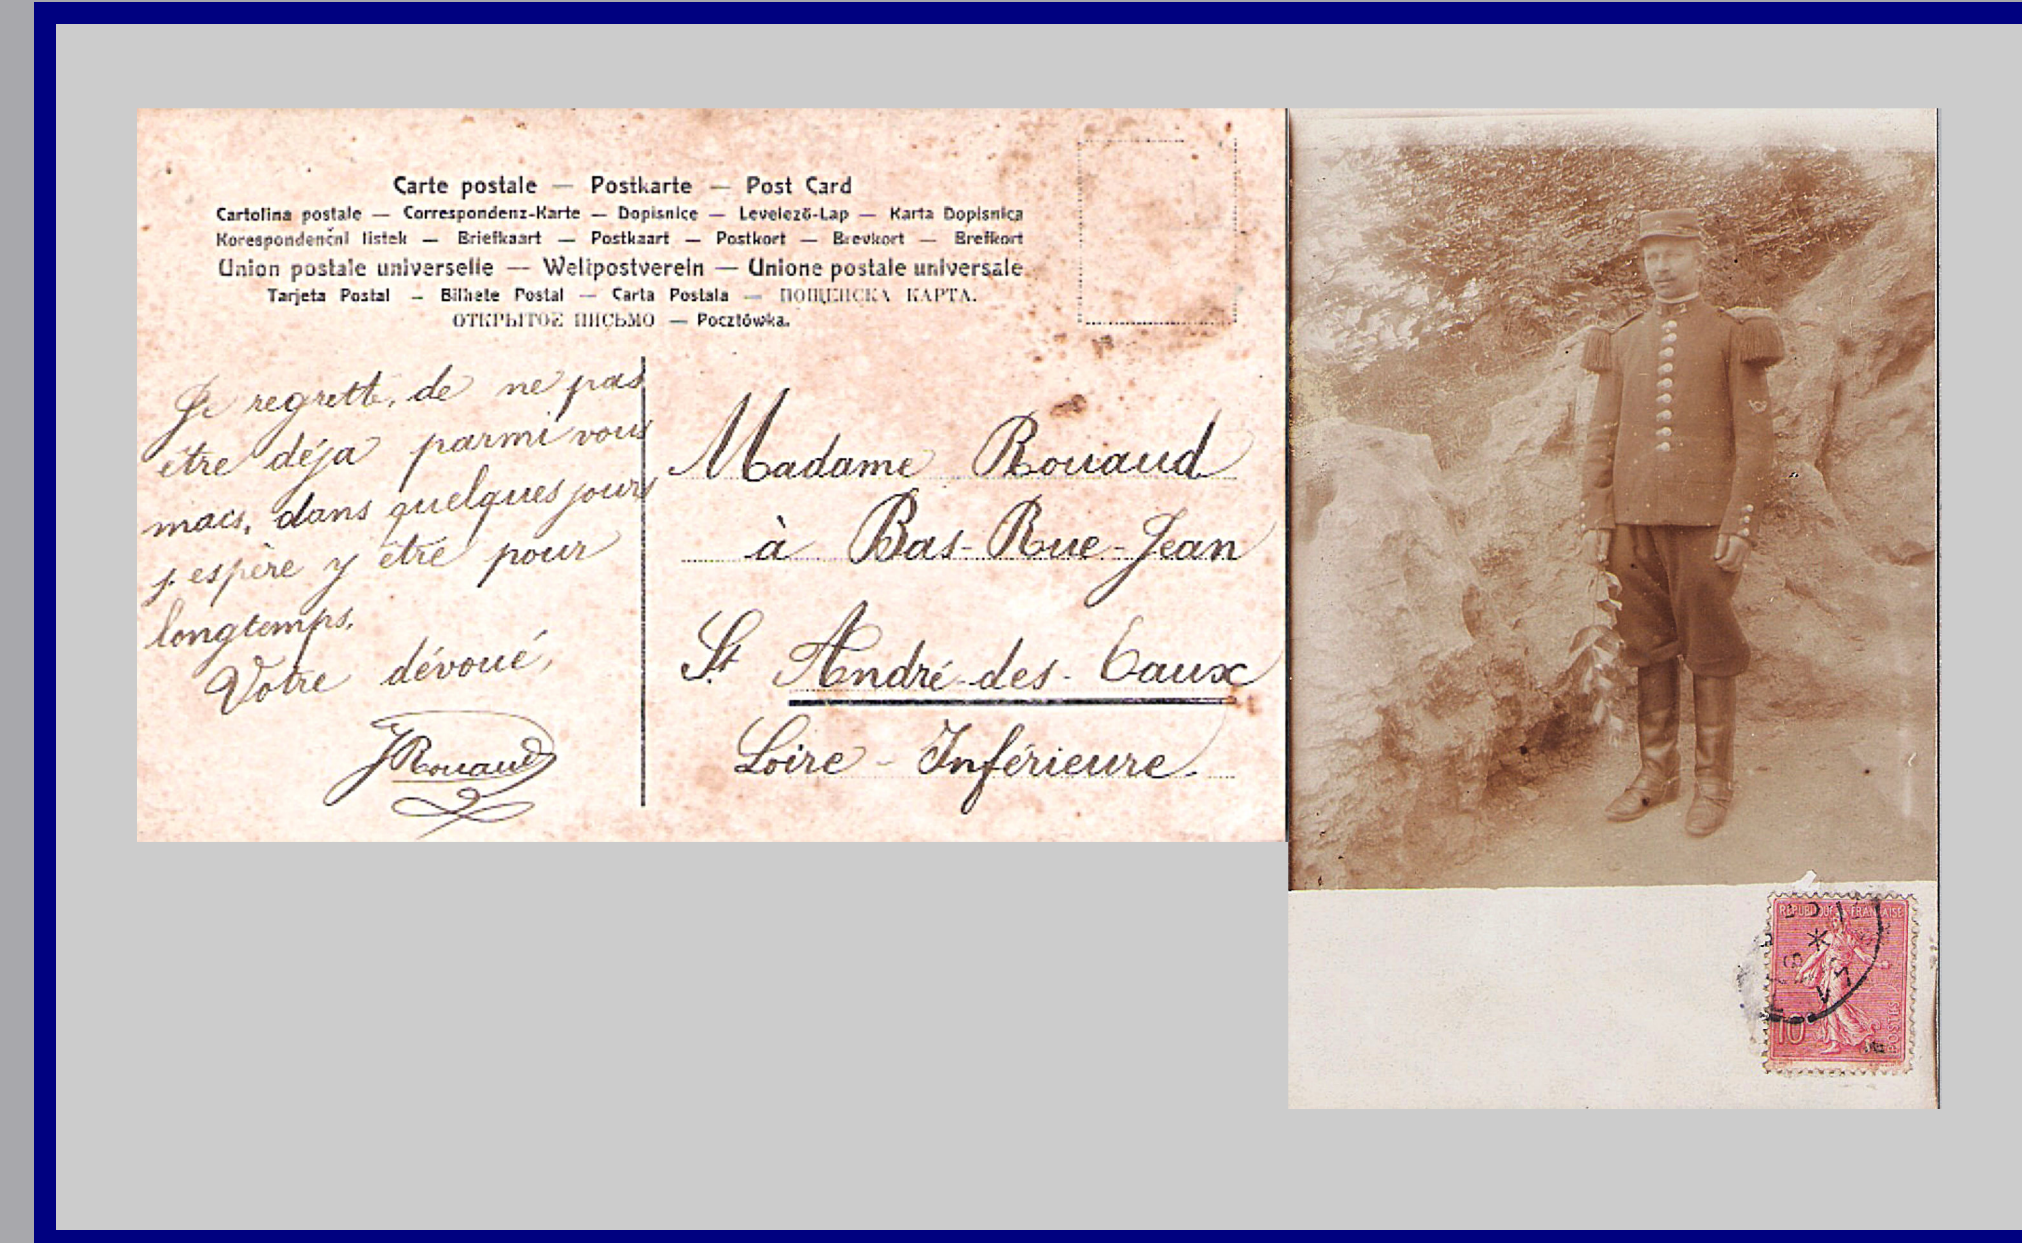 Carte postale — Postkarte — Post Card
Cartolina postale — Correspondenz-Karte — Dopisnice — Levelező-Lap — Karta Dopisnica
Korespondenční listek — Briefkaart — Postkaart — Postkort — Brevkort — Brefkort
Union postale universelle — Weltpostverein — Unione postale universale
Tarjeta Postal — Bilhete Postal — Carta Postala — ПОЩЕНСКА КАРТА.
ОТКРЫТОЕ ПИСЬМО — Pocztówka.
Je regrette, de ne pas
être déja parmi vous
mais, dans quelques jours
j'espère y être pour
longtemps.
Votre dévoué,
JRouaud
Madame Rouaud
à Bas-Rue-Jean
St André-des-Eaux
Loire-Inférieure.
REPUBLIQUE FRANÇAISE
10
POSTES